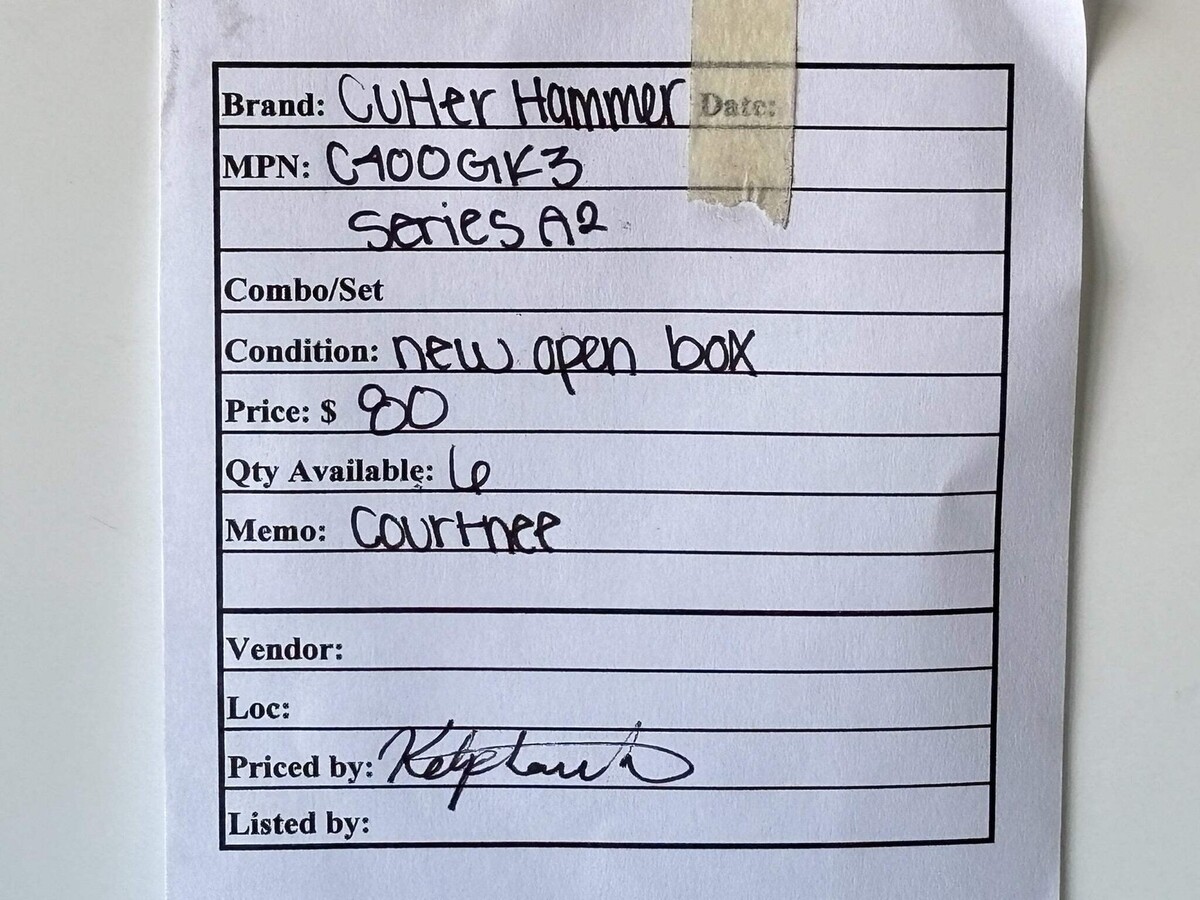 Brand: Cutter Hammer Date:
MPN: C400GK3
Series A2
Combo/Set
Condition: new open box
Price: $ 80
Qty Available: 6
Memo: Courtnee
Vendor:
Loc:
Priced by:
Listed by: